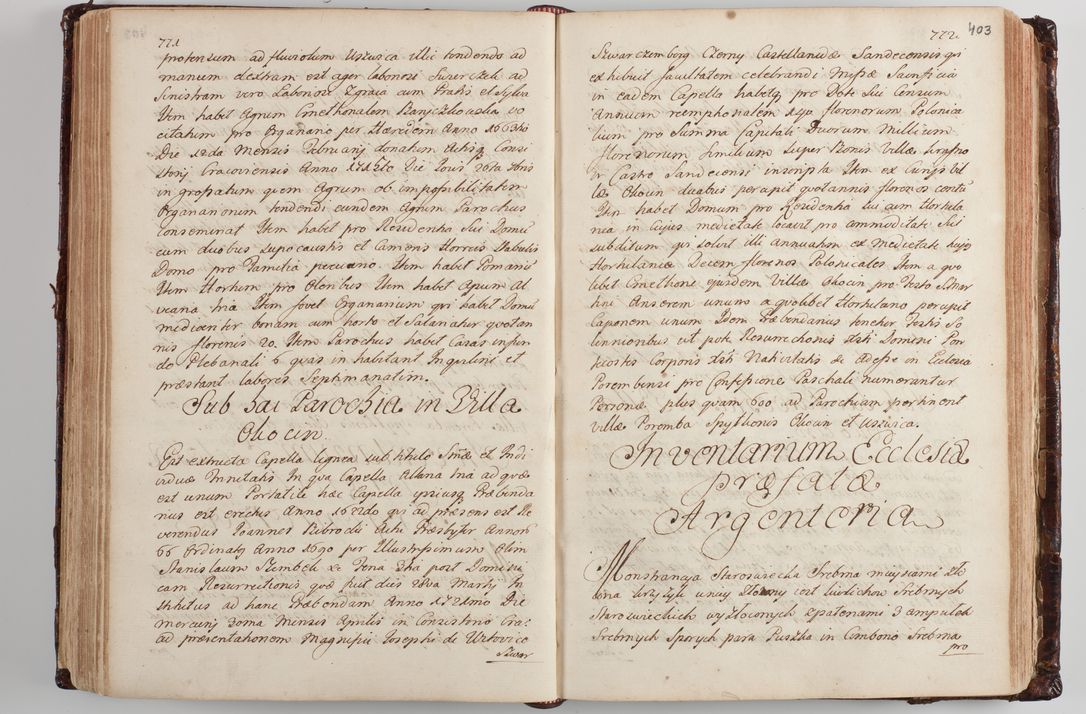 771
protensum ad fluviolum Uszwica illi tendendo ad
manum dextram est ager laboriosi Swierczek ad
Sinistram vero Laboriosi Zgraia cum Pratis et Sylva
Item habet Agrum Cmethonalem Stanjczkowska vo
citatum pro Organario per Haeredem Anno 1663tio
Die 12da Mensis February donatum Actisq Consi
storij Cracoviensis Anno 1715to Die Jovis 26ta
in grossatum quem Agrum ob impossibilitatem
Organariorum tendendi eundem Agrum Parochus
conseminat Item habet pro Residentia sui Domũ
cum duobus supocaustis et Cameris Horreis Stabulis
Domo pro Familia pecuaro. Item habet Pomariũ
Item Hortum pro Oleribus Item habet Apum Al
vearia tria Item fovet Organarium qui habet Domũ
mediocriter bonam cum horto et Salariatur quotan
nis florenis 20. Item Parochus habet Casas in fun
do Plebanali 6 quas in habitant Inquilini et
præstant labores Septimanatim.
Sub hac Parochia in Villa
Okocim.
Est extructa Capella lignea sub titulo Smæ et Indi
viduæ Trinitatis In qua Capella Altaria tria ad quæ
est unum Portatile hæc Capella ipsiusq Præbenda
rius est erectus Anno 1622do qui ad præsens est Re
verendus Joannes Præsbyter Annorũ
66 Ordinatq Anno 1690 per Illustrissimum Olim
Stanislaum Szembek de Feria 3tia post Domini
cam Resurrectionis quæ fuit dies 28va Martij In
stitutus ad hanc Præbendam Anno 1721mo Die
mercurij 2 Mensis Aprilis in Consistorio Cra:
ad præsentationem Magnifici Josephi de Wistovice
Szwar
772. 403
Szwarczemberg Czerny Castellanidæ Sandecensis qui
exhibuit facultatem celebrandi Missæ Sacrificia
in eadem Capella habetq pro Dote sui Censum
Annuum reemptionalem florenorum Polonica
lium pro summa Capitali Duorum Millium
florenorum similium super Bonis Villæ
in Castro Sandecensi inscripta Item ex Curijs Vil
læ Okocim duabus percipit quotannis florenos centũ
Item habet Domum pro Residentia sui cum Hortula
nia in cujus medietate locavit pro commoditate sui
subditum qui solvit illi annuatim ex Medietate hujq
Hortulaniæ Decem florenos Polonicales Item a quo
libet Cmethone ejusdem Villæ Okocim pro Festo S Mar
tini Anserem unum a quolibet Hortulano percipit
Caponem unum Idem Præbendarius tenetur Festis So
lennioribus ut pote Resurrectionis Xsti Domini Pen
ticostes Corporis Xsti Nativitatis &c Adesse in Ecclesia
Porembensi pro Confessione Paschali numerantur
Personæ plus quam 600 ad Parochiam pertinent
villæ Poromba Spytkonis Okocim et Uszwica.
Inventarium Ecclesiæ
præfatæ
Argenteria
Monstrancya Staroswiecka Srebrna mieyscami Zło
cona Krzyżyk u niey Złoty iest kielichow Srebrnych
Staroswieckich wyzłoconych z patenami 3 ampułek
Srebrnych Sporych para Puszka in Cemborio Srebrna
pro